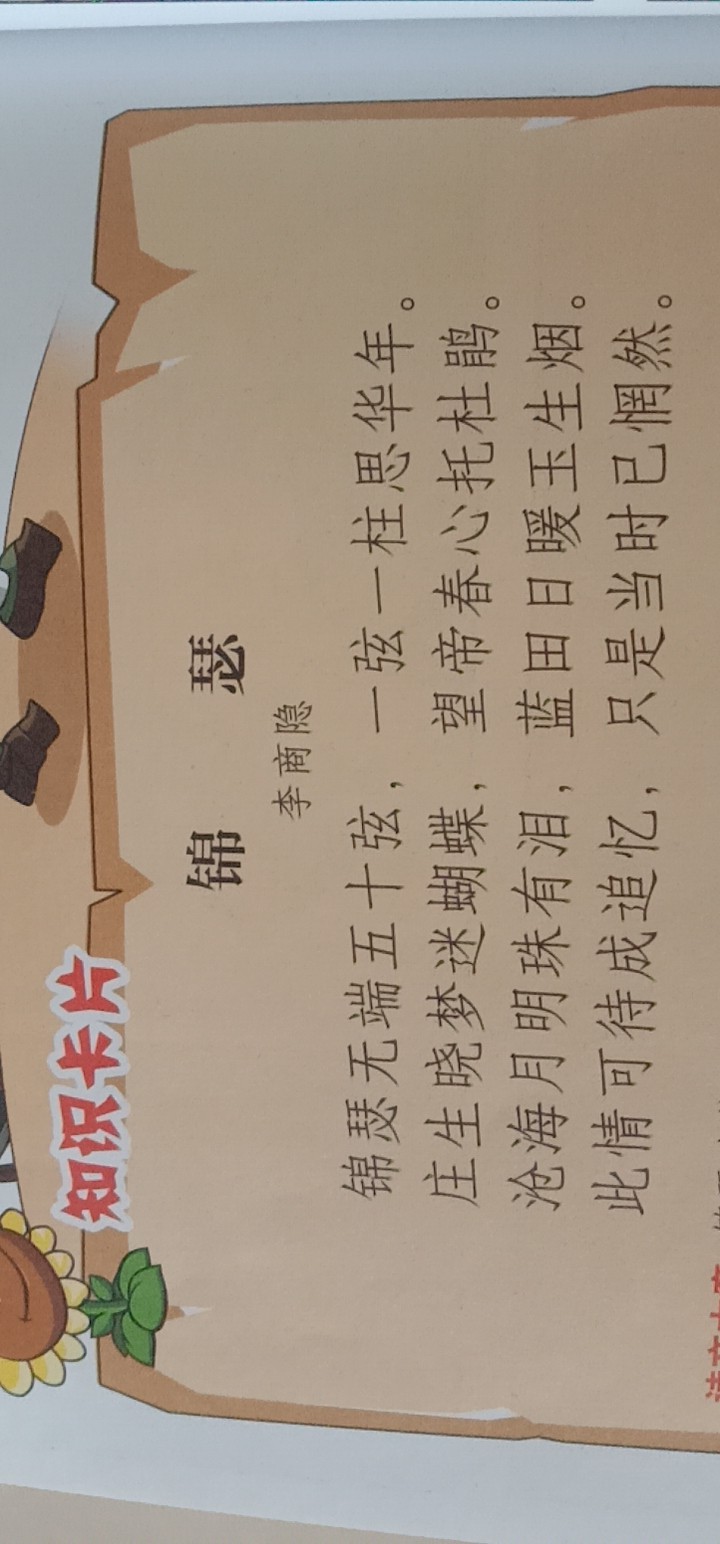 知识卡片
锦瑟
李商隐
锦瑟无端五十弦，一弦一柱思华年。
庄生晓梦迷蝴蝶，望帝春心托杜鹃。
沧海月明珠有泪，蓝田日暖玉生烟。
此情可待成追忆，只是当时已惘然。